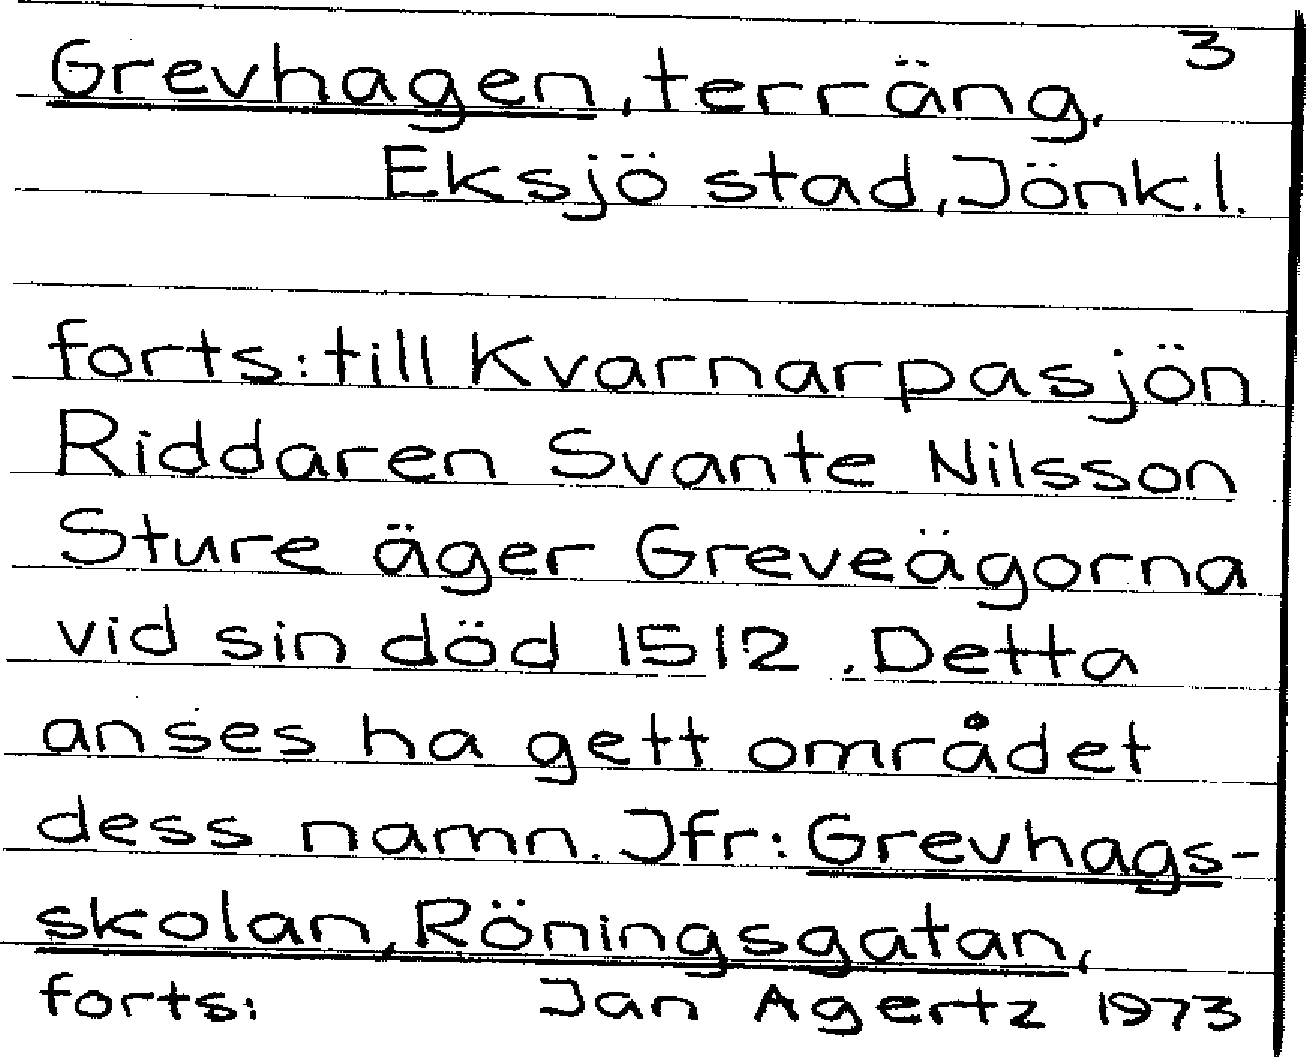 3
Grevhagen, terräng,
Eksjö stad, Jönk.l.
forts: till Kvarnarpasjön.
Riddaren Svante Nilsson
Sture äger Greveägorna
vid sin död 1512. Detta
anses ha gett området
dess namn. Jfr: Grevhags-
skolan, Röningsgatan,
forts: Jan Agertz 1973